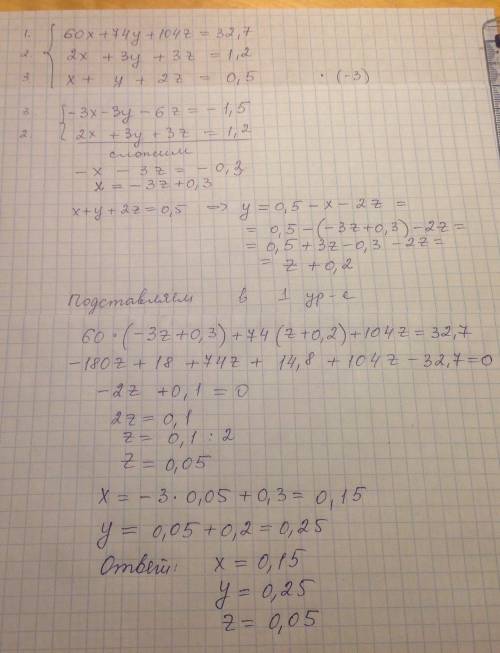 1. 60x+74y+104z=32,7
2. 2x +3y +3z =1,2
3 x+ y + 2z = 0,5 · (-3)
3. -3x-3y-6z=-1,5
2. 2x +3y+3z =1,2
сложим
-x - 3z = -0,3
x=-3z+0,3
x+y+2z=0,5 => y=0,5-x-2z=
= 0,5-(-3z+0,3)-2z=
= 0,5+3z-0,3-2z=
= z+0,2
Подставляем в 1 ур-е
60·(-3z+0,3)+74(z+0,2)+104z=32,7
-180z+18+74z+14,8+104z-32,7=0
-2z+0,1=0
2z=0,1
z=0,1:2
z=0,05
x=-3·0,05+0,3=0,15
y=0,05+0,2=0,25
Ответ: x=0,15
y=0,25
z=0,05